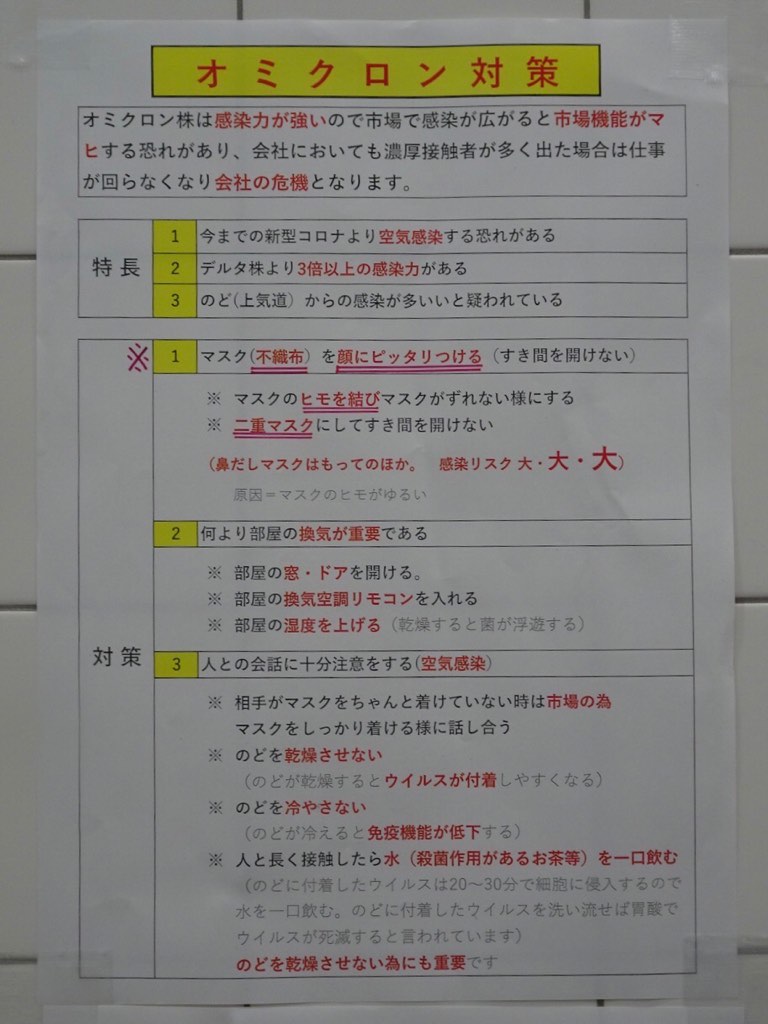 オミクロン対策
オミクロン株は感染力が強いので市場で感染が広がると市場機能がマ
ヒする恐れがあり、会社においても濃厚接触者が多く出た場合は仕事
が回らなくなり会社の危機となります。
特長
1 今までの新型コロナより空気感染する恐れがある
2 デルタ株より3倍以上の感染力がある
3 のど(上気道）からの感染が多いいと疑われている
対策
※ 1 マスク(不織布）を顔にピッタリつける（すき間を開けない）
※ マスクのヒモを結びマスクがずれない様にする
※ 二重マスクにしてすき間を開けない
（鼻だしマスクはもってのほか。 感染リスク 大・大・大）
原因＝マスクのヒモがゆるい
2 何より部屋の換気が重要である
※ 部屋の窓・ドアを開ける。
※ 部屋の換気空調リモコンを入れる
※ 部屋の湿度を上げる（乾燥すると菌が浮遊する）
3 人との会話に十分注意をする(空気感染）
※ 相手がマスクをちゃんと着けていない時は市場の為
マスクをしっかり着ける様に話し合う
※ のどを乾燥させない
（のどが乾燥するとウイルスが付着しやすくなる）
※ のどを冷やさない
（のどが冷えると免疫機能が低下する）
※ 人と長く接触したら水（殺菌作用があるお茶等）を一口飲む
（のどに付着したウイルスは20〜30分で細胞に侵入するので
水を一口飲む。のどに付着したウイルスを洗い流せば胃酸で
ウイルスが死滅すると言われています）
のどを乾燥させない為にも重要です